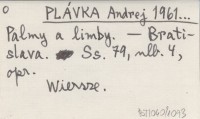 o PLÁVKA Andrej 1961...
Palmy a limby. — Brati-
slava. Ss. 79, nlb. 4,
opr.
Wiersze.